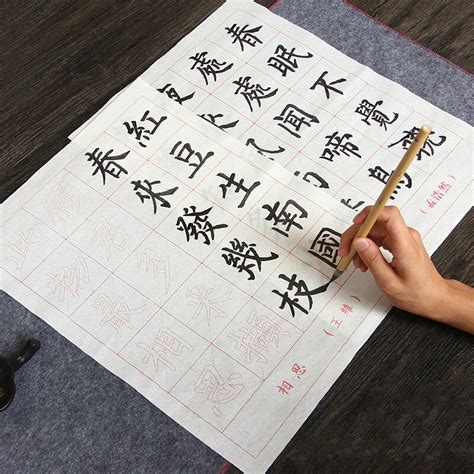 春眠不覺曉
處處聞啼鳥
夜
(孟浩然)
紅豆生南國
春來發幾枝
多采擷
此物最相思
(王維)
相思